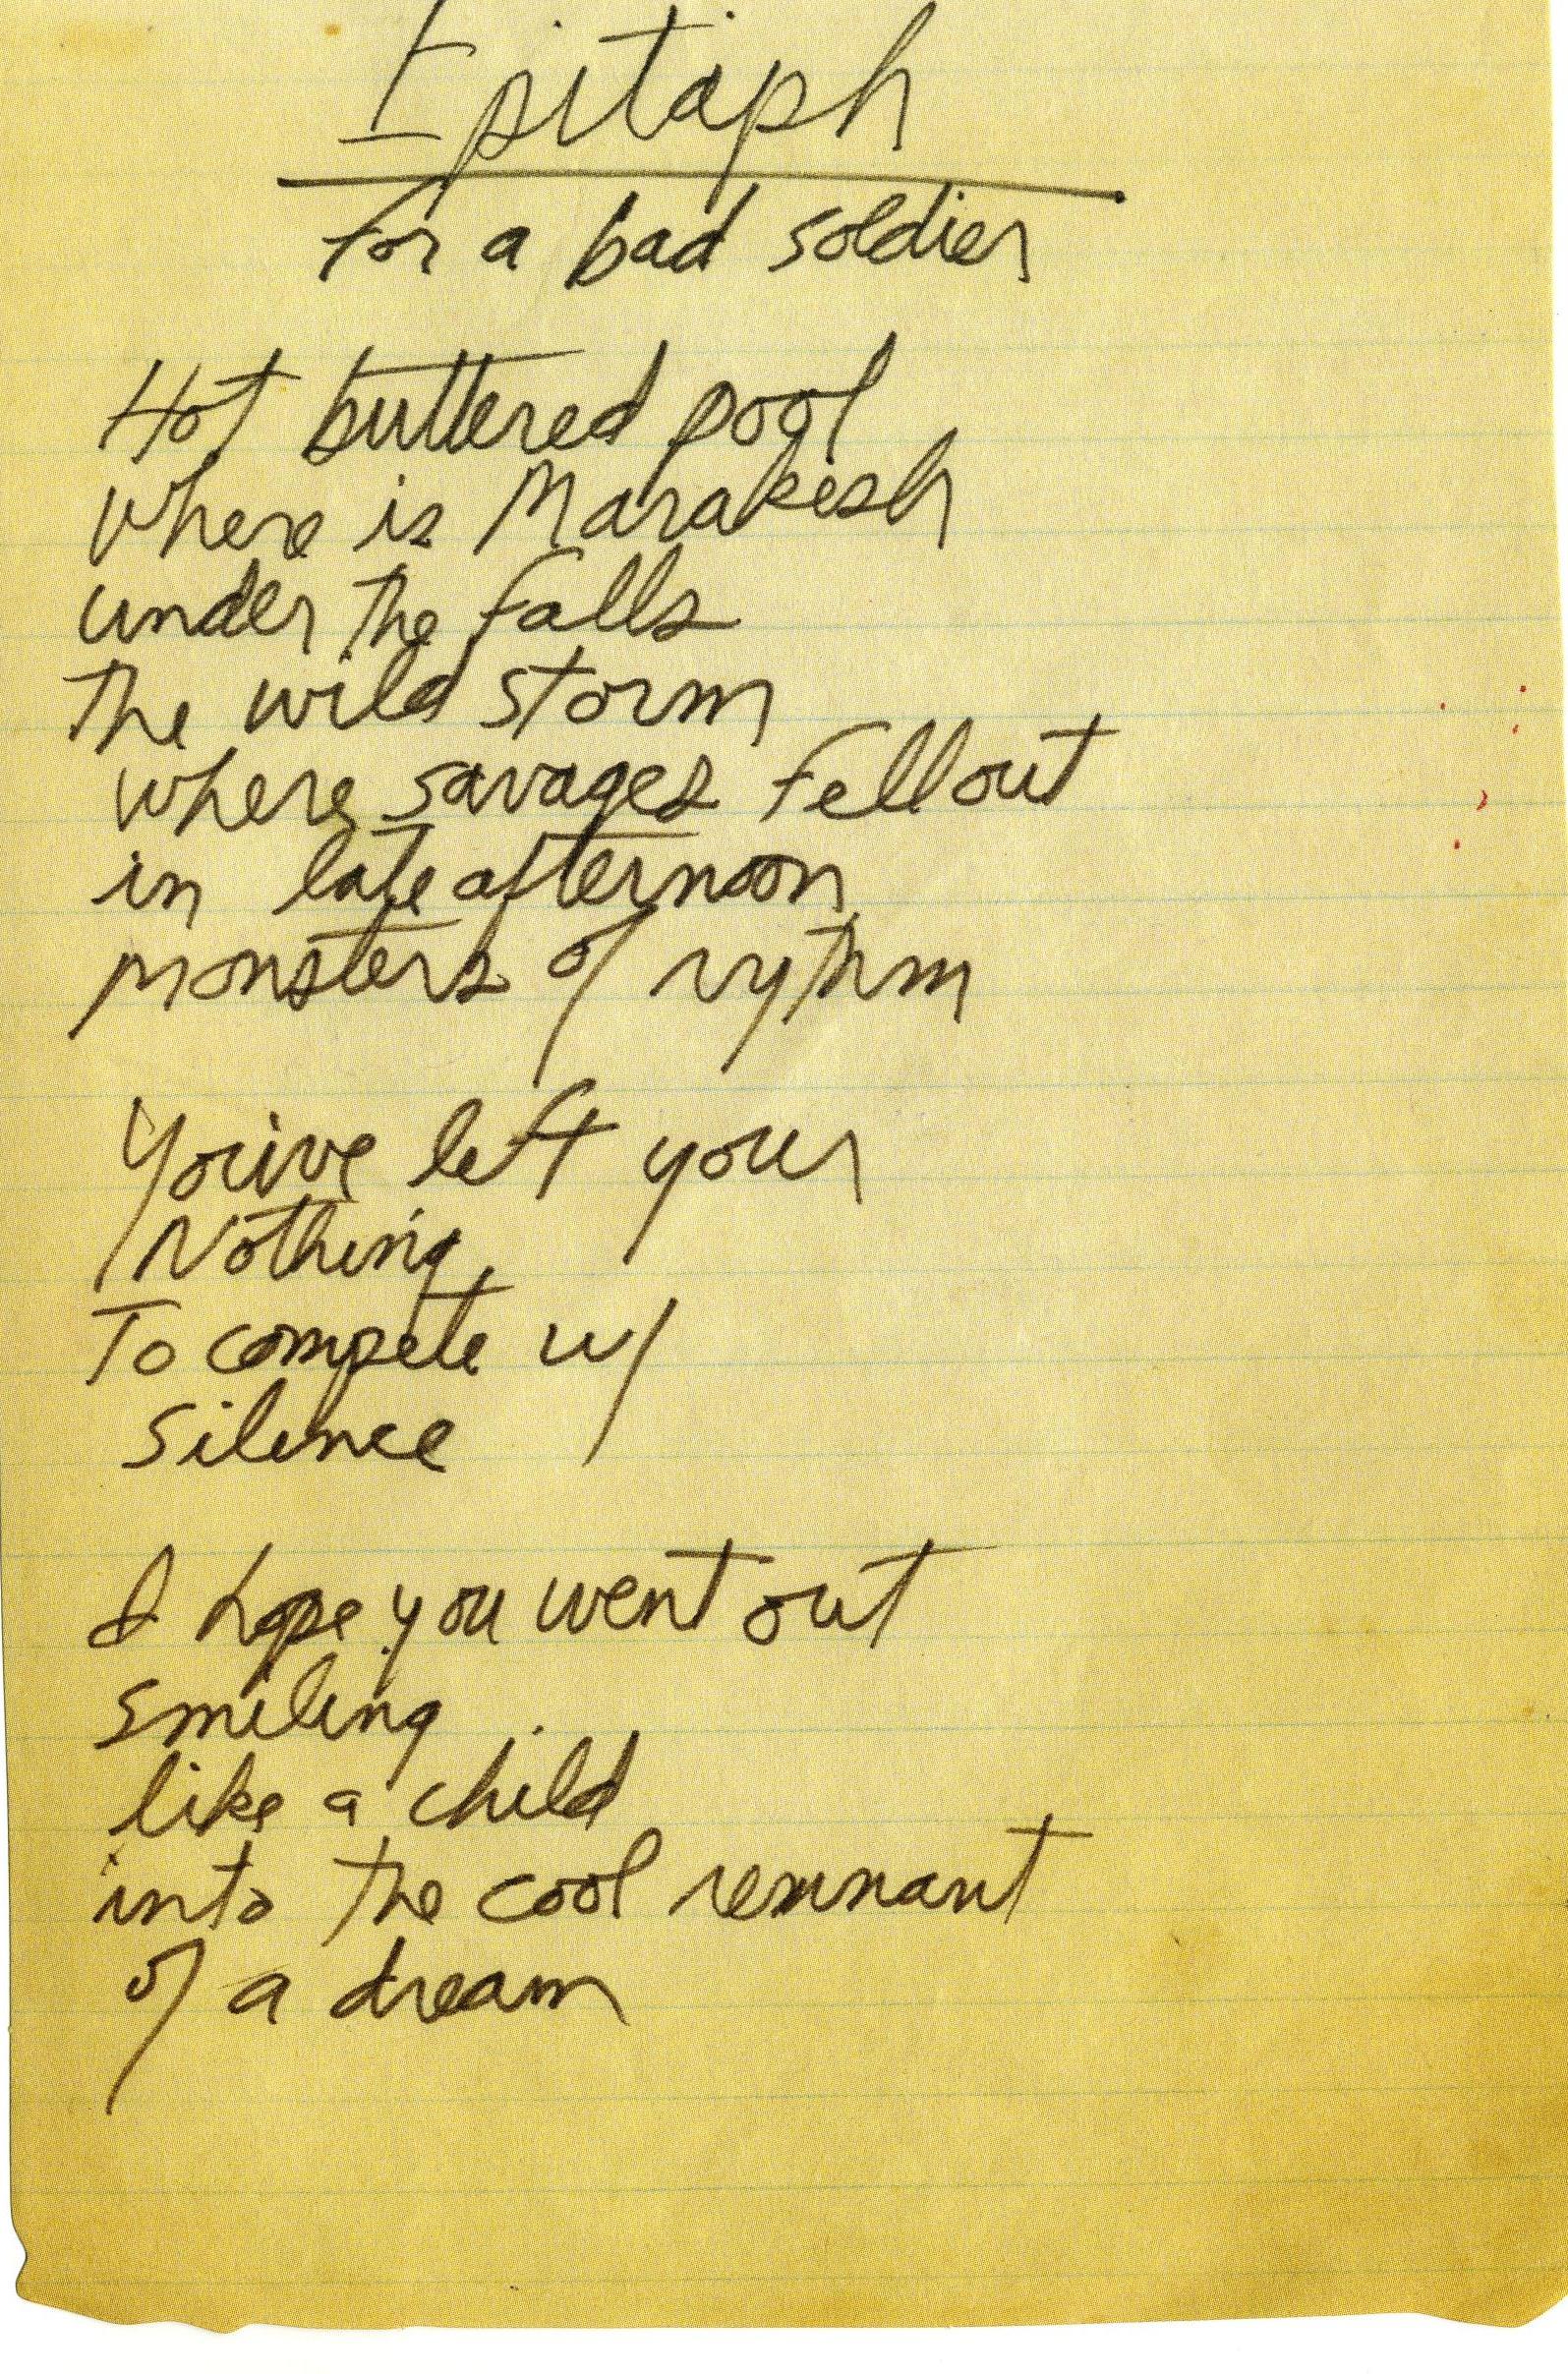 Epitaph
for a bad soldier
Hot buttered pool
where is Marakesh
under the falls
the wild storm
where savages fell out
in late afternoon
monsters of rythm
You've left your
Nothing
To compete w/
Silence
I hope you went out
smiling
like a child
into the cool remnant
of a dream